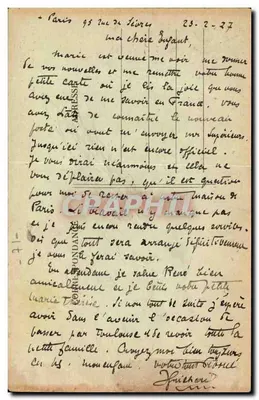 Paris 95 rue de Sèvres 23-2-27
ma chère Enfant,
Marie est venue me voir me donner
de vos nouvelles et me remettre votre bonne
petite carte où je lis la joie que vous
avez eue de me savoir en France. Vous
avez de connaître le nouveau
poste où vont m'envoyer mes Supérieurs
jusqu'ici rien n'est encore officiel.
Je vous dirai néanmoins, et cela ne
vous déplaira pas, qu'il est question
pour moi de rester maison de
Paris. Le travail n'y manque pas
et je encore rendre quelques services.
Dès que tout sera arrangé définitivement
je vous le ferai savoir.
En attendant je salue René bien
amicalement et je bénis votre petite
Marie Thérèse. Si non tout de suite j'espère
avoir dans l'avenir l'occasion de
passer par Toulouse & de revoir toute la
petite famille. Croyez moi bien toujours
en NS. mon enfant votre tout dévoué
CORRESPONDANCE
ADRESSE
CPAPHIL